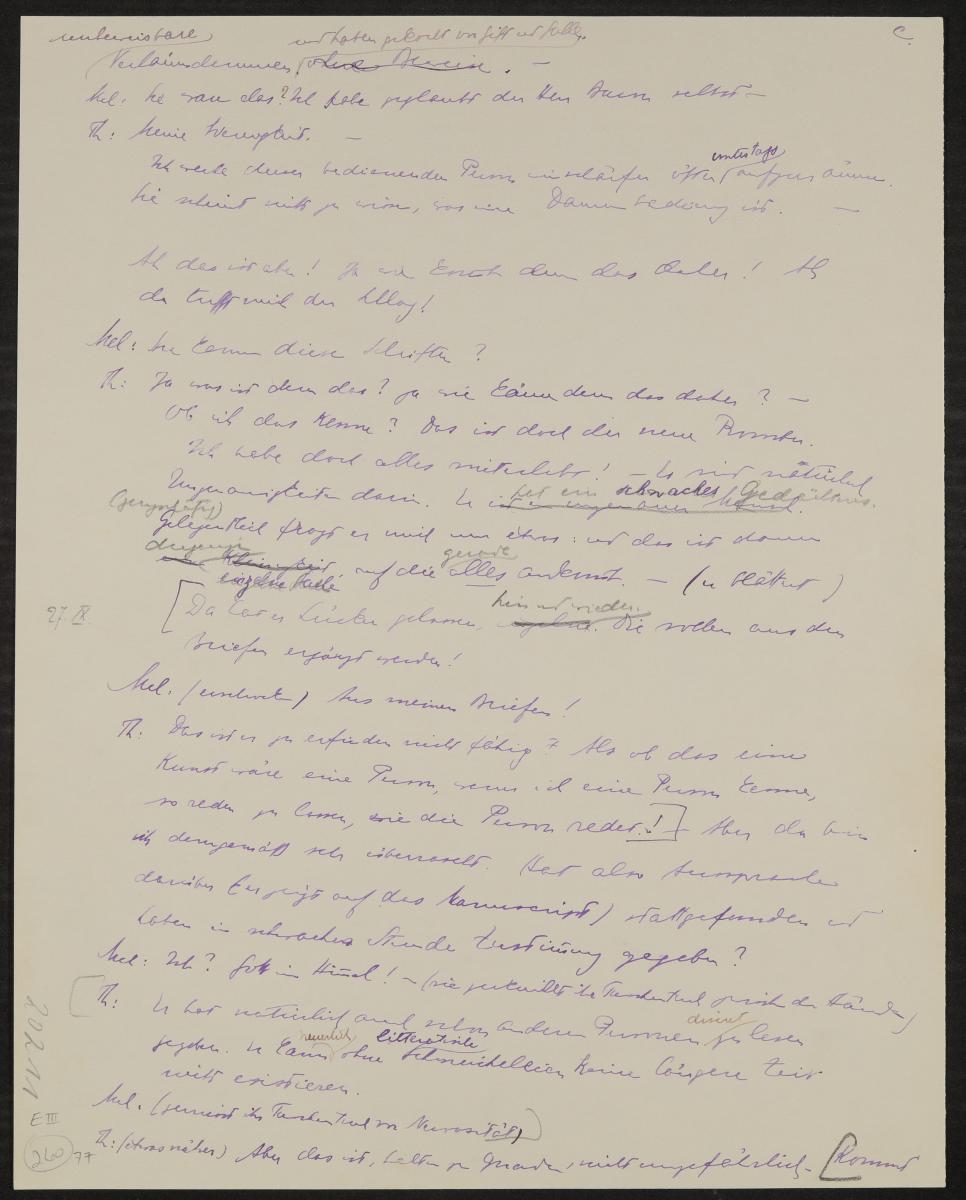 unbeweisbare und haben gekocht von Gift und Galle. c.
Verläumdermien, ohne Beweise. —
Mel: Sie war das? Ich habe geglaubt der Herr Baron selbst —
Th: Meine Wenigkeit. —
Ich werde dieser bedienenden Person einschärfen öfter untertags aufzuräumen.
Sie scheint nicht zu wissen, was eine Damenbedienung ist. —
Ah das ist aber! Ja wie kommt denn das daher! Ah
da trifft mich der Schlag!
Mel: Sie kennen diese Schriften?
Th: Ja was ist denn das? ja wie kommt denn das daher? —
Ob ich das kenne? Das ist doch der neue Roman.
Ich habe doch alles miterlebt! — Es sind natürlich
Ungenauigkeiten darin. Er hat ein schwaches Gedächtnis.
(geringschätzig)
Gelegentlich fragt er mich um etwas: und das ist dann
diejenige einzelne Stelle auf die gerade alles ankommt. — (er blättert)
27. IX. [Da hat er Lücken gelassen, hin und wieder. Die sollen aus den
Briefen ergänzt werden!
Mel. (erschrocken) Aus meinen Briefen!
Th: Das ist er zu erfinden nicht fähig? Als ob das eine
Kunst wäre eine Person, wenn ich eine Person kenne,
so reden zu lassen, wie die Person redet!] Aber da bin
ich demgemäß sehr überrascht. Hat also Aussprache
darüber (er zeigt auf das Manuscript) stattgefunden und
haben in schwacher Stunde Zustimmung gegeben?
Mel: Ich? Gott im Himmel! — (sie zerknüllt ihr Taschentuch zwischen den Händen)
[Th: Er hat natürlich auch schon anderen Personen discret zu lesen
gegeben. Er kann neuerlich ohne litterarische Schmeicheleien keine längere Zeit
nicht existieren.
Mel. (zerreisst ihr Taschentuch vor Nervosität)]
Th: (etwas näher) Aber das ist, halten zu Gnaden, nicht ungefährlich. [Kommt
202 11
E III
240 77